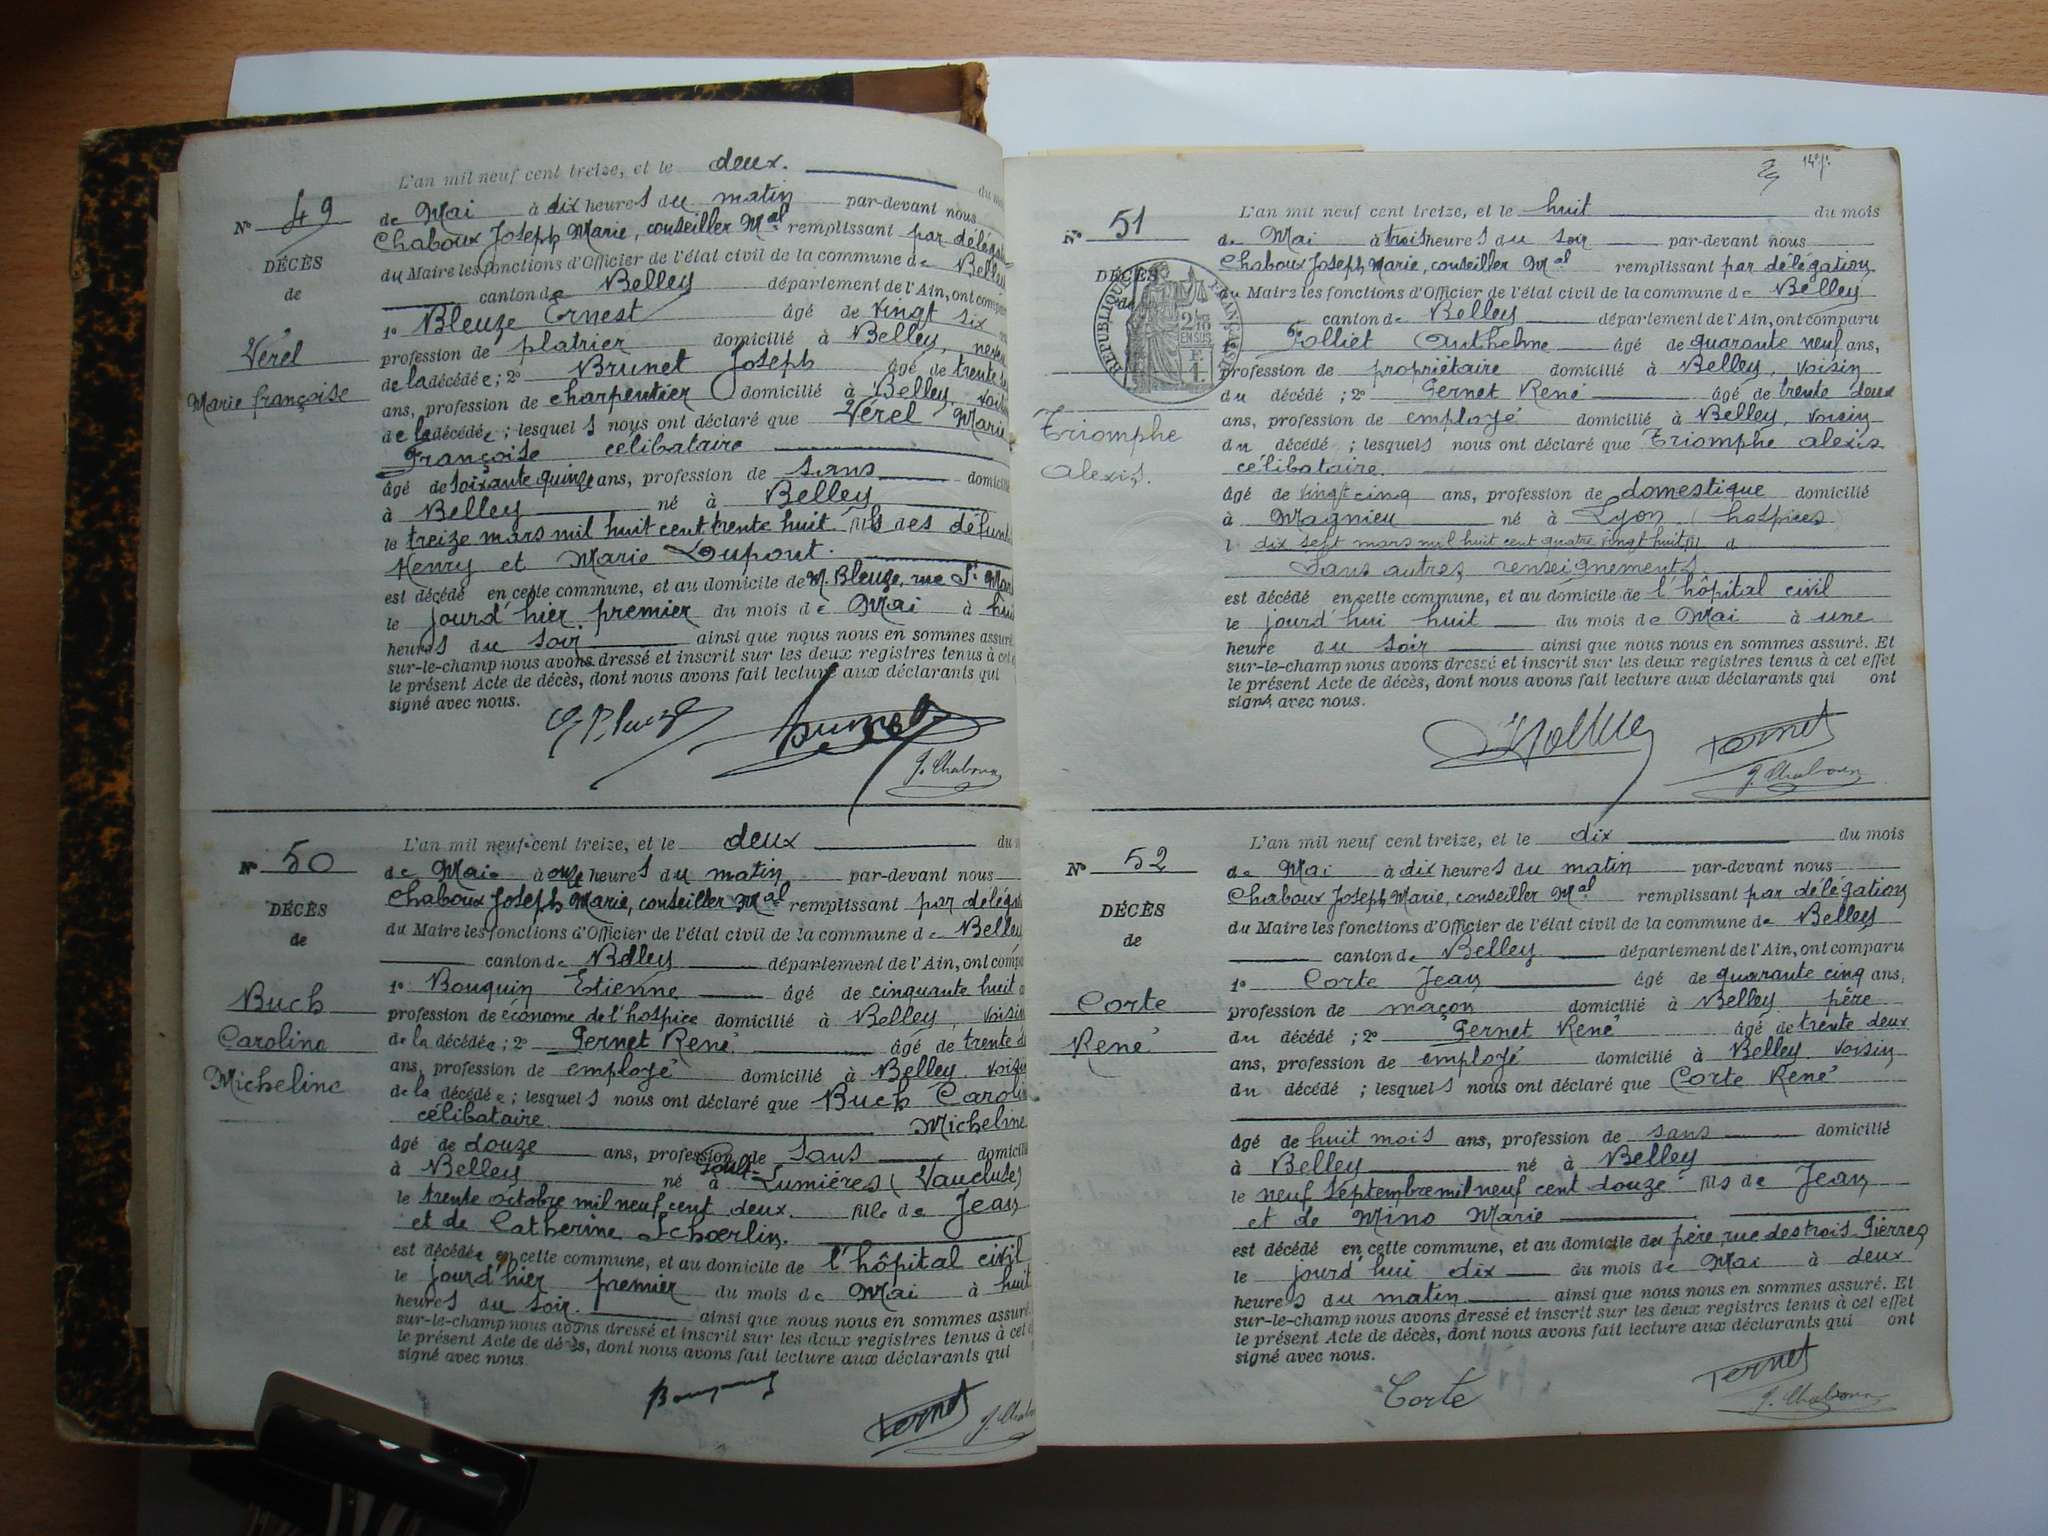 L'an mil neuf cent treize, et le deux. du
Nº 49
de Mai à dix heures du matin par-devant nous
Chaboux Joseph Marie, conseiller Mal remplissant par délég
DÉCÈS
du Maire les fonctions d'Officier de l'état civil de la commune de Belley
de
canton de Belley département de l'Ain, ont comp
1º Bleuze Ernest âgé de vingt six
Vérel
profession de platrier domicilié à Belley,
Marie françoise
de la décédée ; 2º Brunet Joseph âgé de trente
ans, profession de charpentier domicilié à Belley, voisin
de la décédée ; lesquels nous ont déclaré que Vérel Marie
Françoise célibataire
âgé de soixante quinze ans, profession de sans domicilié
à Belley né à Belley
le treize mars mil huit cent trente huit. fils des défunts
Henry et Marie Dupont.
est décédé en cette commune, et au domicile de M. Bleuze, rue St Mar
le jourd'hier premier du mois de Mai à huit
heures du soir. ainsi que nous nous en sommes assuré.
sur-le-champ nous avons dressé et inscrit sur les deux registres tenus à cet
le présent Acte de décès, dont nous avons fait lecture aux déclarants qui
signé avec nous.
Brunet
J. Chaboux
L'an mil neuf cent treize, et le deux du
Nº 50
de Mai à onze heures du matin par-devant nous
Chaboux Joseph Marie, conseiller Mal remplissant par délég
DÉCÈS
du Maire les fonctions d'Officier de l'état civil de la commune de Belley
de
canton de Belley département de l'Ain, ont comp
1º Bouquin Etienne âgé de cinquante huit
Buch
profession de économe de l'hospice domicilié à Belley, voisin
Caroline
de la décédée ; 2º Pernet René âgé de trente
Micheline
ans, profession de employé domicilié à Belley. voisin
de la décédée ; lesquels nous ont déclaré que Buch Caroline
célibataire Micheline
âgé de douze ans, profession de sans domicilié
à Belley né à Goult-Lumières (Vaucluse)
le trente octobre mil neuf cent deux. fille de Jean
et de Catherine Schœrlin.
est décédée en cette commune, et au domicile de l'hôpital civil
le jourd'hier premier du mois de Mai à huit
heures du soir. ainsi que nous nous en sommes assuré.
sur-le-champ nous avons dressé et inscrit sur les deux registres tenus à cet
le présent Acte de décès, dont nous avons fait lecture aux déclarants qui
signé avec nous.
Pernet
J. Chaboux
29
14e fle
L'an mil neuf cent treize, et le huit du mois
Nº 51
de Mai à trois heures du soir par-devant nous
Chaboux Joseph Marie, conseiller Mal remplissant par délégation
DÉCÈS
du Maire les fonctions d'Officier de l'état civil de la commune de Belley
de
RÉPUBLIQUE FRANÇAISE
2/10 EN SUS
F. 1.
canton de Belley département de l'Ain, ont comparu
1º Folliet Anthelme âgé de quarante neuf ans,
profession de propriétaire domicilié à Belley, voisin
du décédé ; 2º Pernet René âgé de trente deux
ans, profession de employé domicilié à Belley, voisin
Triomphe
du décédé ; lesquels nous ont déclaré que Triomphe Alexis
Alexis.
célibataire.
âgé de vingt cinq ans, profession de domestique domicilié
à Magnieu né à Lyon (hospices)
l dix sept mars mil huit cent quatre vingt huit fil d
Sans autres renseignements.
est décédé en cette commune, et au domicile de l'hôpital civil
le jourd'hui huit du mois de Mai à une
heure du soir ainsi que nous nous en sommes assuré. Et
sur-le-champ nous avons dressé et inscrit sur les deux registres tenus à cet effet
le présent Acte de décès, dont nous avons fait lecture aux déclarants qui ont
signé avec nous.
Pernet
J. Chaboux
L'an mil neuf cent treize, et le dix du mois
Nº 52
de Mai à dix heures du matin par-devant nous
Chaboux Joseph Marie, conseiller Mal remplissant par délégation
DÉCÈS
du Maire les fonctions d'Officier de l'état civil de la commune de Belley
de
canton de Belley département de l'Ain, ont comparu
1º Corte Jean âgé de quarante cinq ans,
Corte
profession de maçon domicilié à Belley père
René
du décédé ; 2º Pernet René âgé de trente deux
ans, profession de employé domicilié à Belley. voisin
du décédé ; lesquels nous ont déclaré que Corte René
âgé de huit mois ans, profession de sans domicilié
à Belley né à Belley
le neuf septembre mil neuf cent douze fils de Jean
et de Mino Marie
est décédé en cette commune, et au domicile du père, rue des trois Pierres
le jourd'hui dix du mois de Mai à deux
heures du matin. ainsi que nous nous en sommes assuré. Et
sur-le-champ nous avons dressé et inscrit sur les deux registres tenus à cet effet
le présent Acte de décès, dont nous avons fait lecture aux déclarants qui ont
signé avec nous.
Corte
Pernet
J. Chaboux